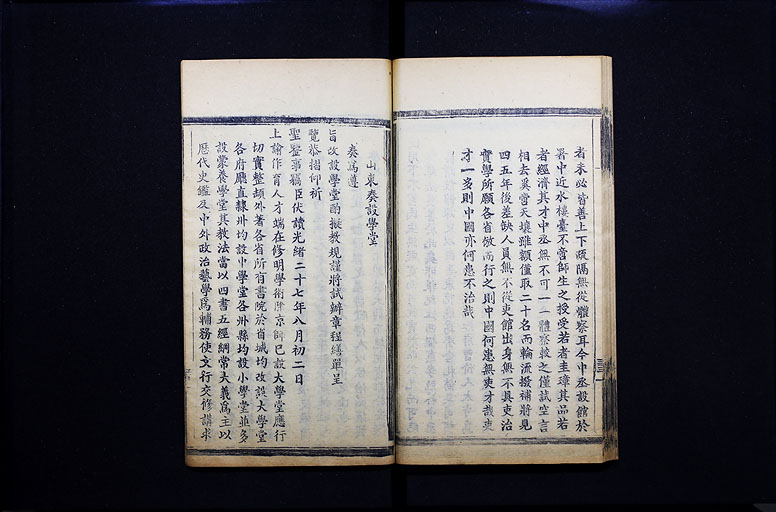 者未必皆善上下疏隔無從體察耳今中丞設館於
署中近水樓臺不啻師生之授受若者圭璋其品若
者經濟其才中丞無不可一一體察較之僅試空言
相去奚啻天壤雖額僅取二十名而輪流撥補將見
四五年後差缺人員無不從吏館出身無不具吏治
實學所願各省倣而行之則中國何患無吏才哉吏
才一多則中國亦何患不治哉
山東奏設學堂
奏爲遵
旨改設學堂酌擬教規謹將試辦章程繕單呈
覽恭摺仰祈
聖鑒事竊臣伏讀光緒二十七年八月初二日
上諭作育人才端在修明學術除京師已設大學堂應行
切實整頓外著各省所有書院於省城均改設大學堂
各府廳直隸州均設中學堂各州縣均設小學堂並多
設蒙養學堂其教法當以四書五經綱常大義爲主以
歷代史鑑及中外政治藝學爲輔務使文行交修講求